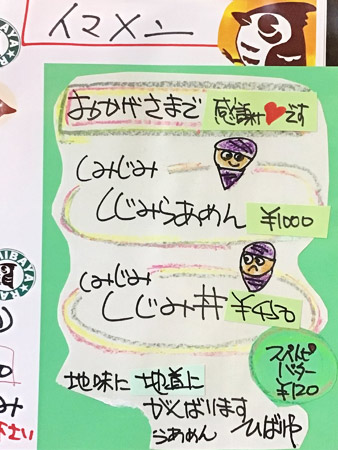 イマメン
おかげさまで 感謝です
しみじみ
しじみらあめん ¥1000
しみじみ
しじみ丼 ¥450
スパイスバター
¥120
地味に 地道に
がんばります
らあめん ひばりや